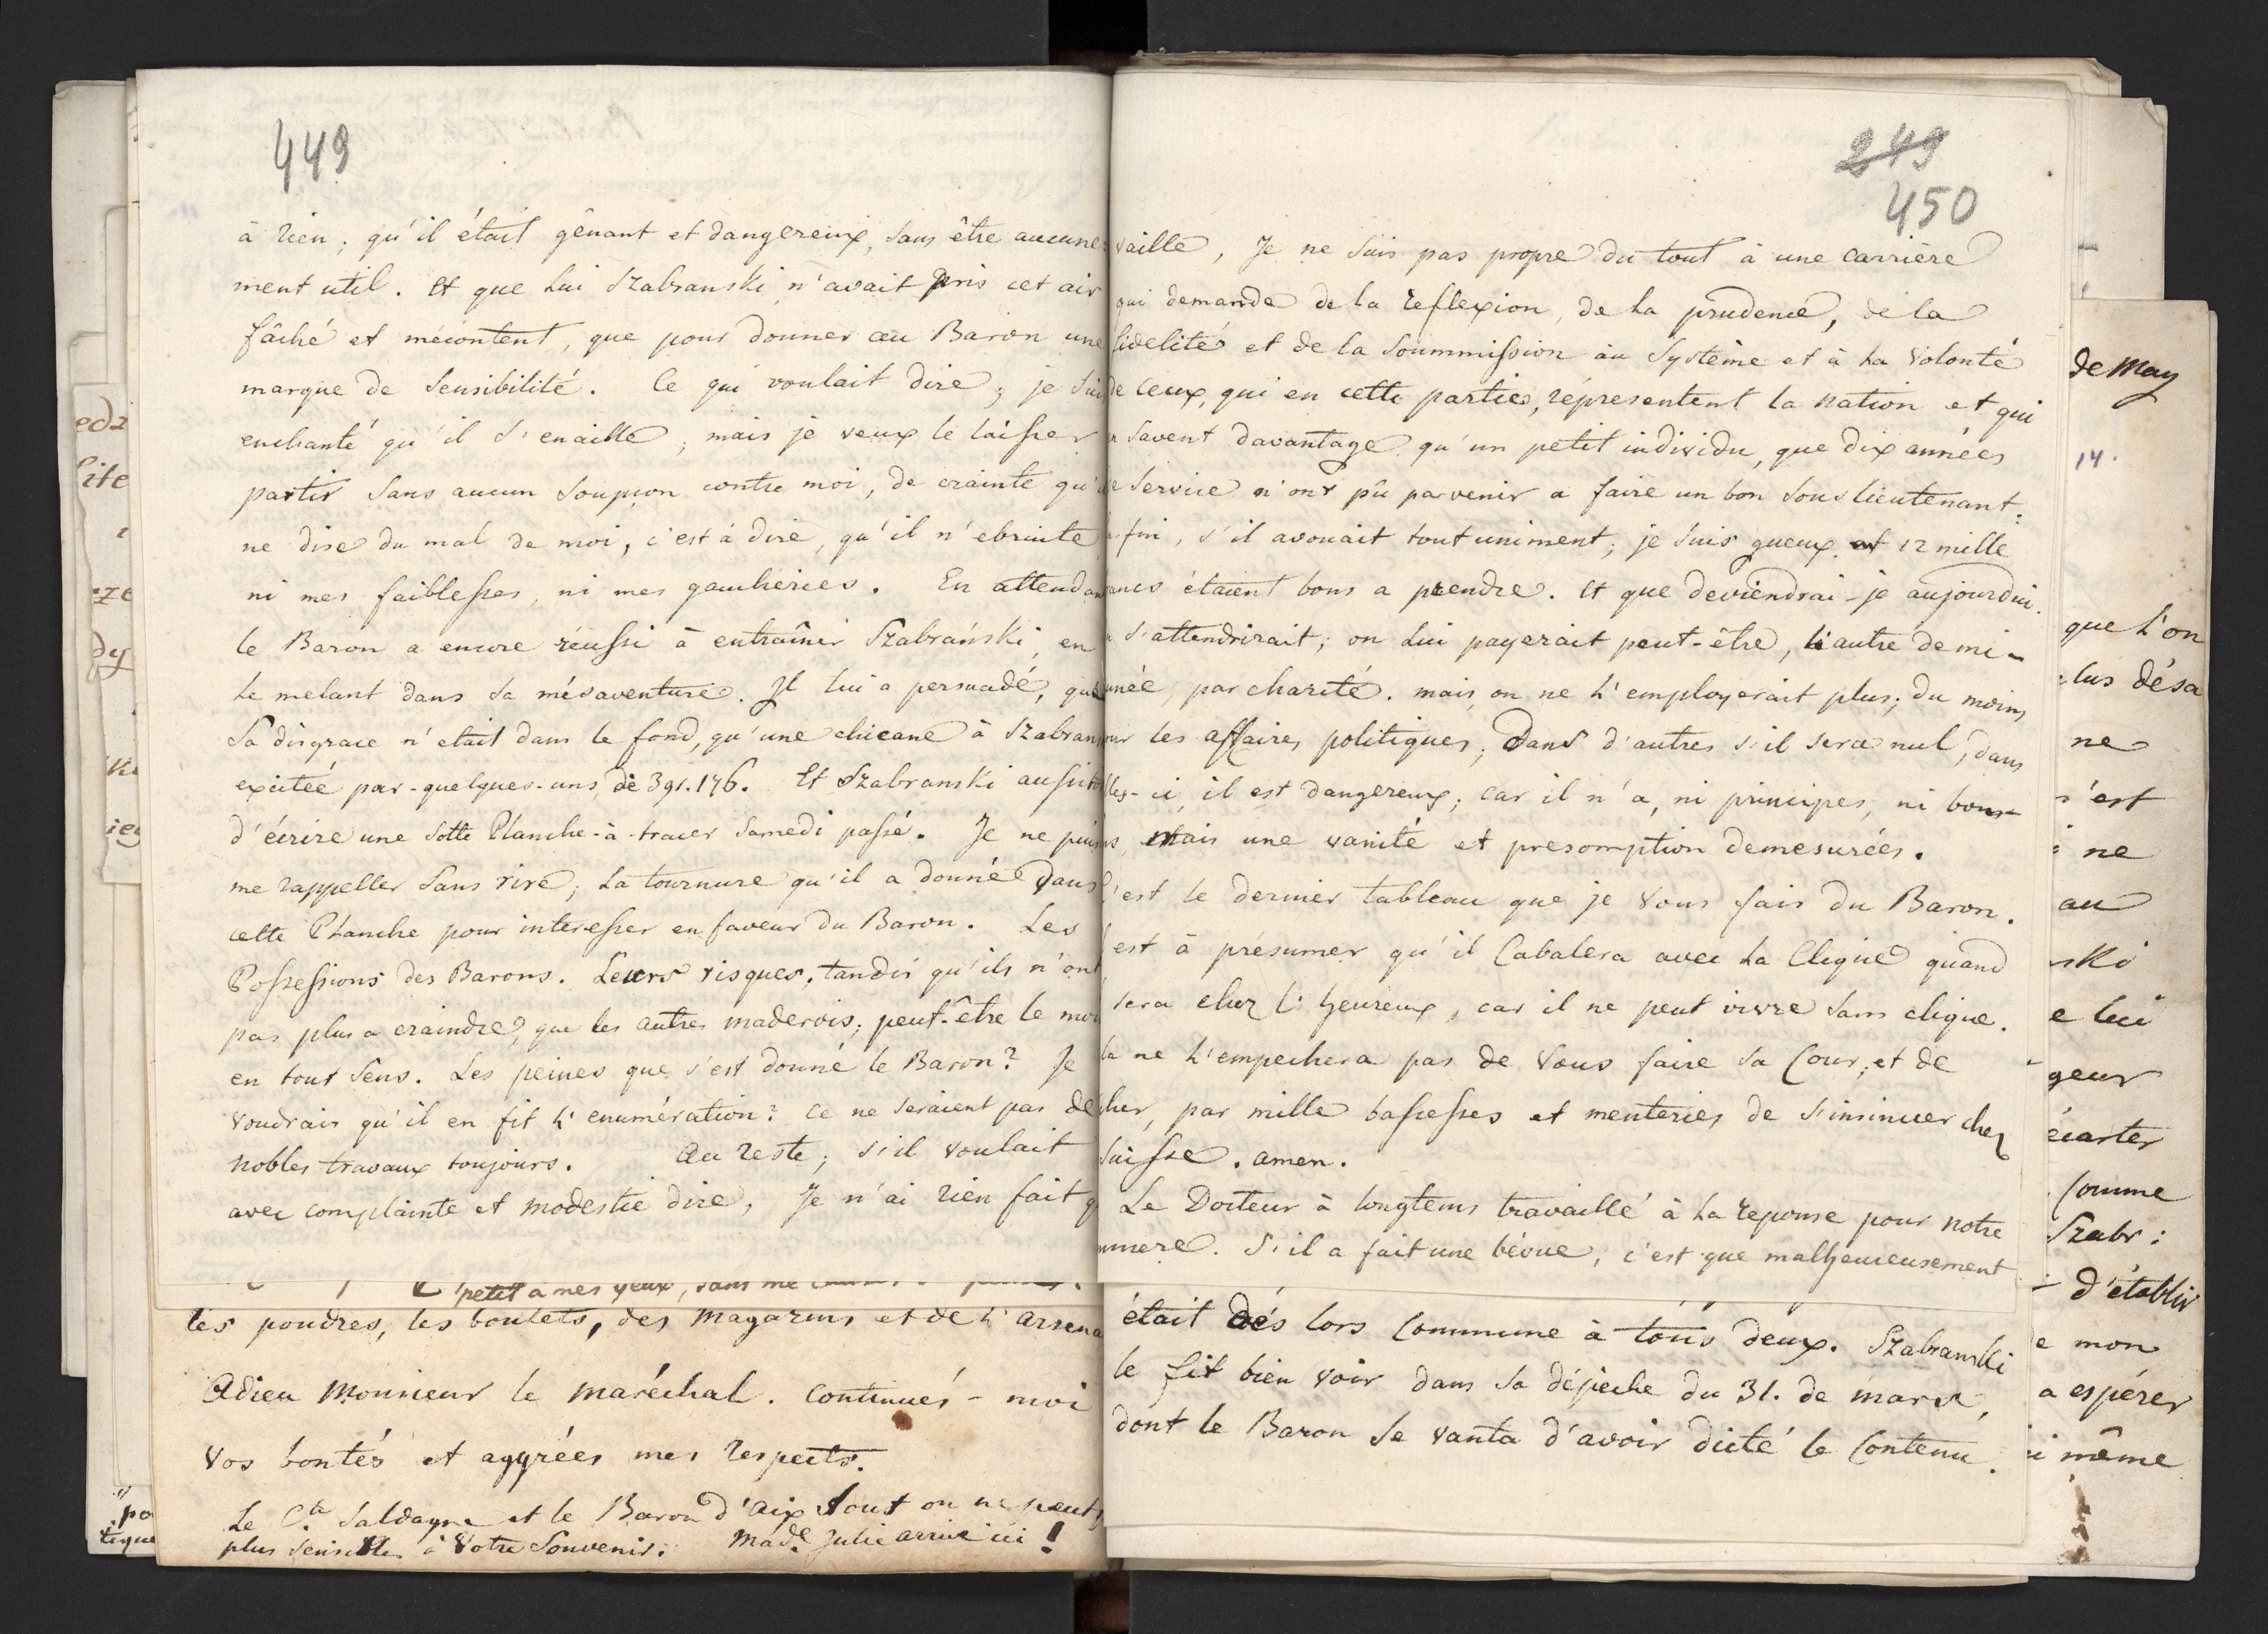 449
à rien; qu'il était gênant et dangereux, sans être aucune
ment util. Et que lui Szabranski n'avait pris cet air
fâché et mécontent, que pour donner au Baron une
marque de sensibilité. Ce qui voulait dire; je sui
enchanté qu'il s'enaille; mais je veux le laisser
partir sans aucun soupçon contre moi, de crainte qu'
ne dise du mal de moi, c'est à dire, qu'il n'ebruite
ni mes faiblesses, ni mes gaucheries. En attendan
le Baron a encore réussi à entraîner Szabrański, en
le melant dans sa mésaventure. Il lui a persuadé, que
Sa disgrace n'etait dans le fond, qu'une chicane à Szabran
excitée par-quelques-uns, de 391.176. Et Szabranski aussito
d'écrire une sotte Planche-à-tracer samedi passé. Je ne puis
me rappeller sans rire, la tournure qu'il a donnée dans
cette Planche pour interesser en faveur du Baron. Les
Possessions des Barons. Leurs risques, tandis qu'ils n'ont
pas plus a craindre, que les autres maderois; peut-être le moi
en tout sens. Les peines que s'est donné le Baron? Je
voudrais qu'il en fit l'enumération: ce ne seraient pas de
nobles travaux toujours. Au reste; s'il voulait
avec complainte et modestie dire, Je n'ai rien fait q
petit a mes yeux, sans me
les poudres, les boulets, des magazins et de l'arsena
Adieu Monsieur le maréchal. Continués-moi
vos bontés et aggrées mes respects.
Le Cte Saldagne et le Baron d'Aix sont on ne peut
plus sensibles à votre Souvenir. Made Julie arrive ici!
249
450
vaille, Je ne suis pas propre du tout à une carrière
qui demande de la reflexion, de la prudence, de la
fidelité et de la soummission au système et à la volonté
de ceux, qui en cette parties, répresentent la nation et qui
savent davantage qu'un petit individu, que dix années
de service n'ont pû parvenir a faire un bon sous lieutenant.
fin, s'il avouait tout uniment; je suis gueux et 12 mille
francs étaient bons a prendre. Et que deviendrai-je aujourdui.
s'attendrirait; on lui payerait peut-être, l'autre demi-
année, par charité. mais, on ne l'employerait plus; du moins
pour les affaires politiques, Dans d'autres s'il sera nul, dans
lles-ci, il est dangereux; car il n'a, ni principes, ni bons
s, mais une vanité et presomption demesurées.
C'est le dernier tableau que je vous fais du Baron.
est à présumer qu'il Cabalera avec la Clique quand
sera chez l'heureux, car il ne peut vivre sans clique.
la ne l'empechera pas de vous faire sa Cour, et de
cher, par mille bassesses et menteries de s'insinuer chez
Suisse. amen.
Le Docteur à longtems travaillé à la reponse pour notre
mmere. S'il a fait une bévue, c'est que malheureusement
était dés lors Commune à tous deux. Szabranski
le fit bien voir dans sa dépeche du 31. de mars,
dont le Baron se vanta d'avoir dicté le Contenu.
de May
14.
que l'on
lus désa
ne
n'est
ne
au
ski
e lui
geur
écarter
Comme
Szabr:
d'établir
e mon
a espérer
i même
edz
lite
dy
"po
tique